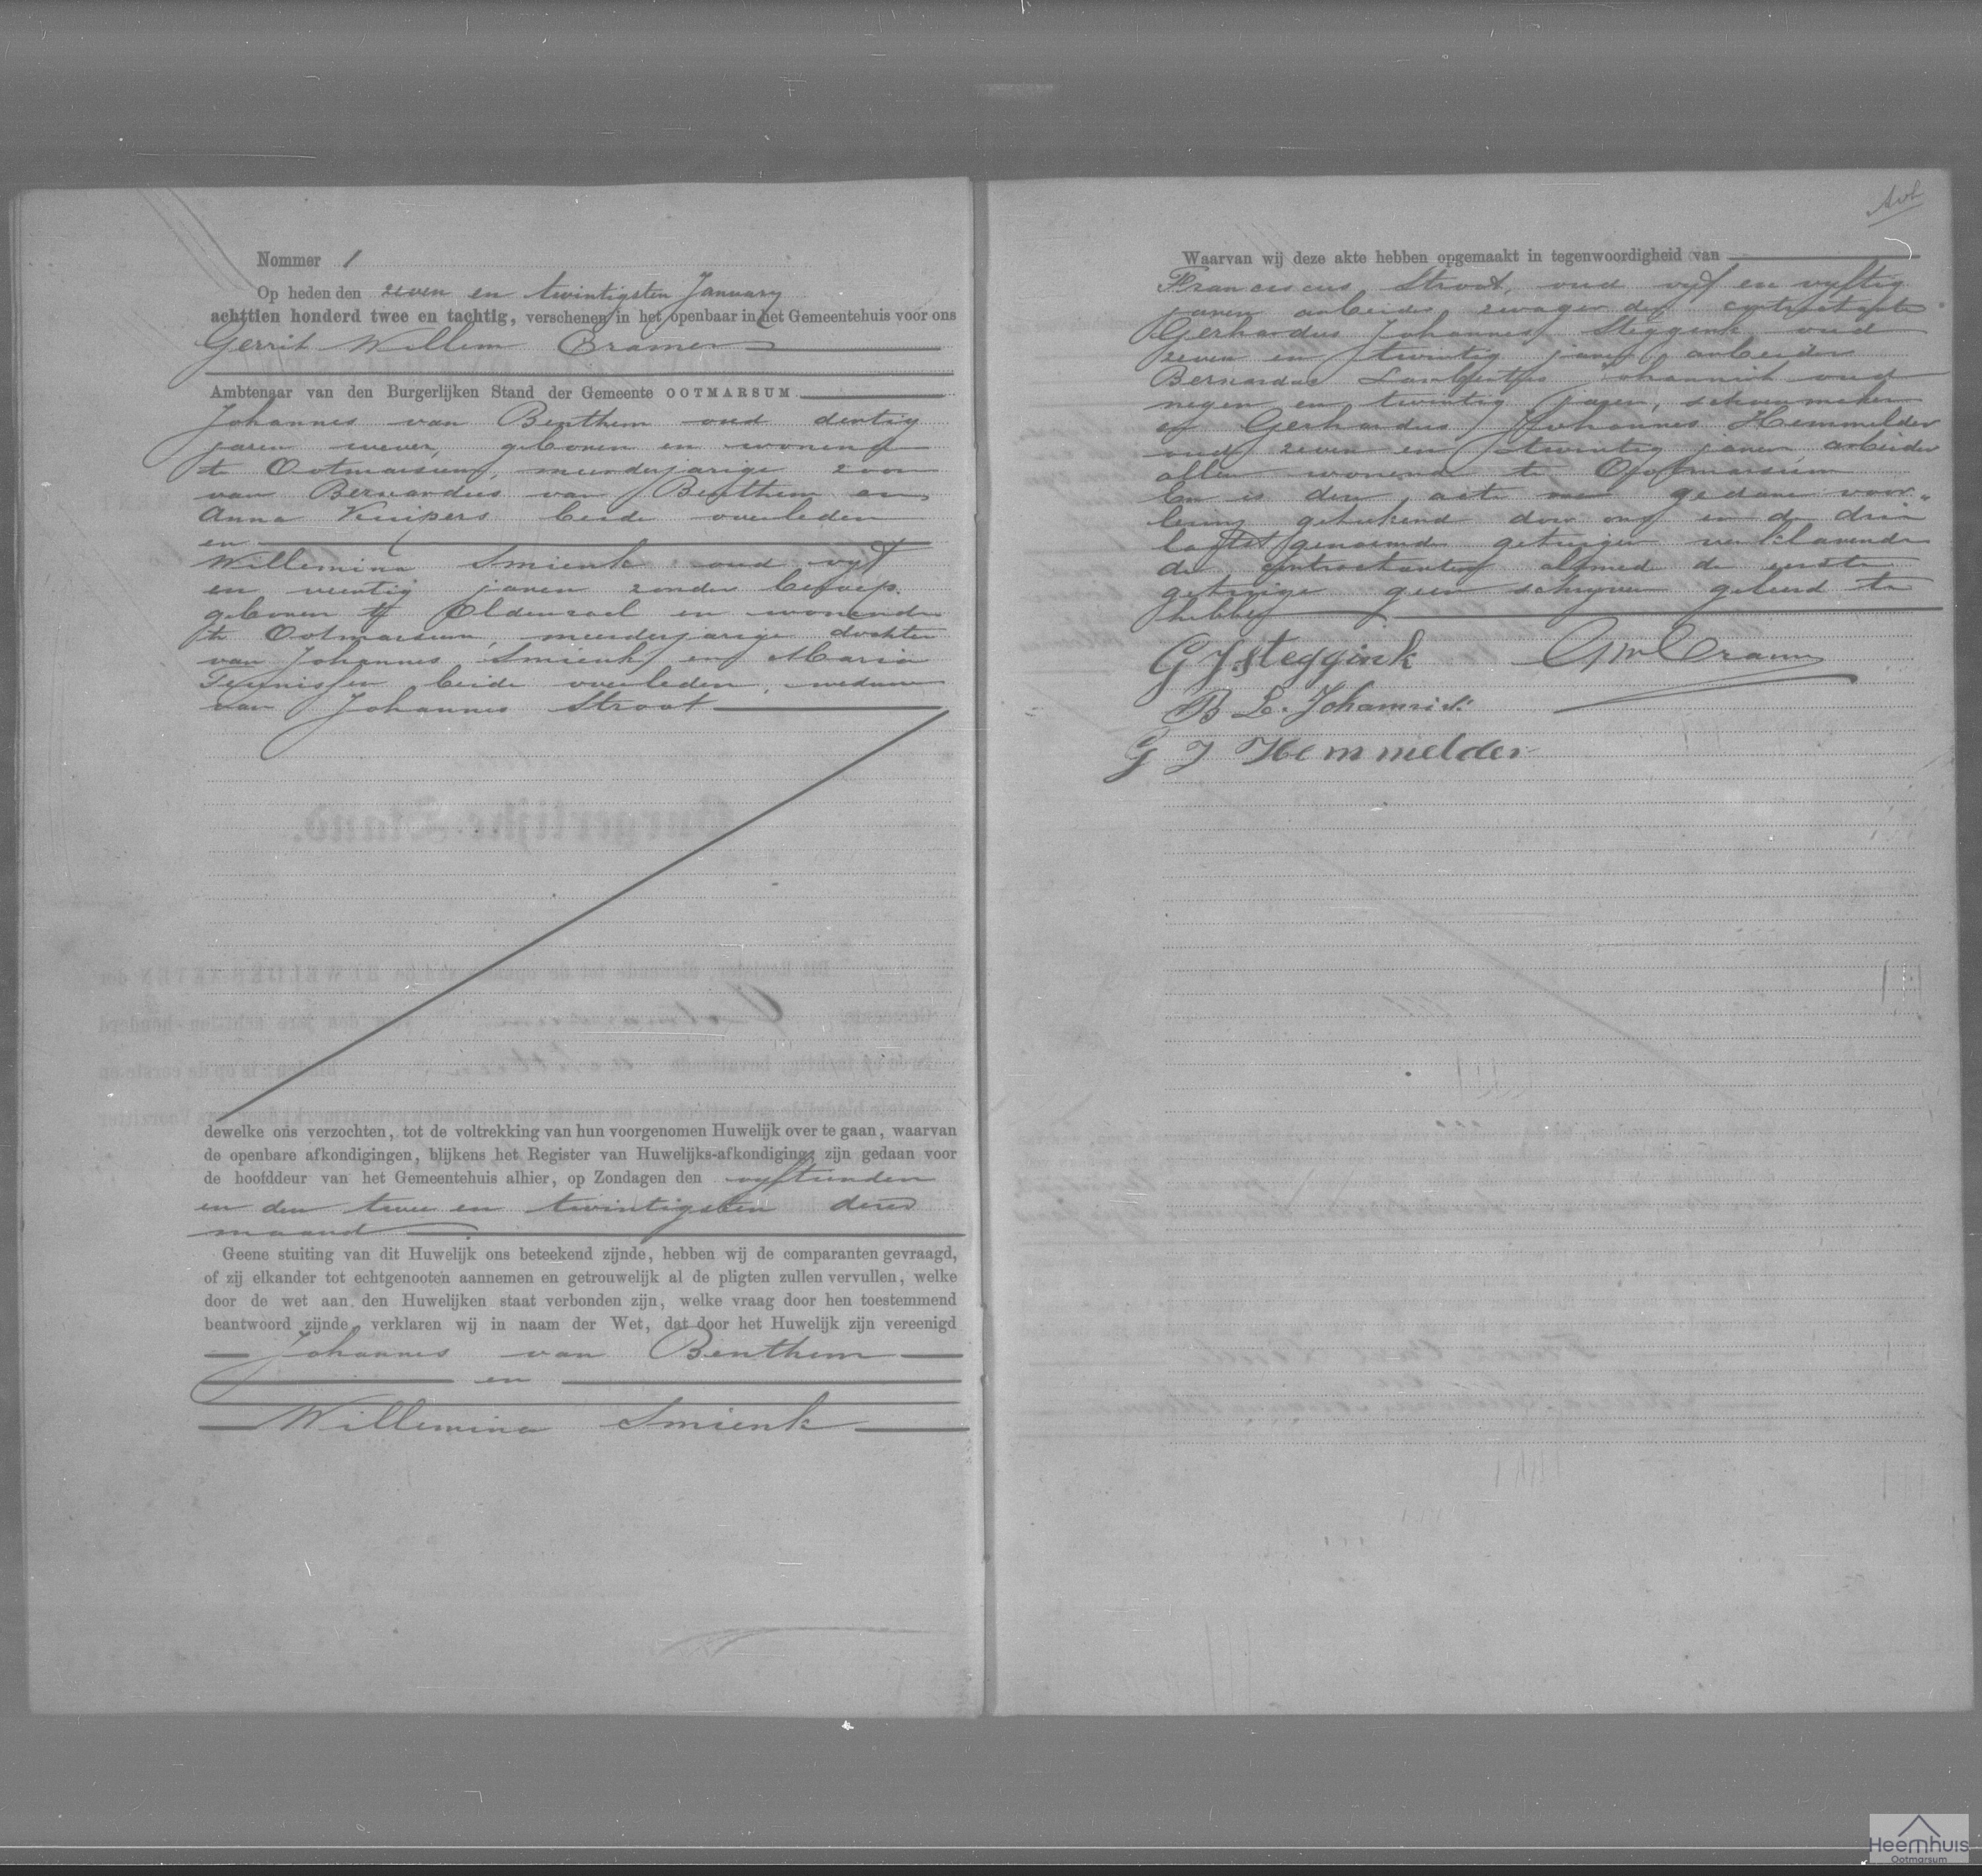 Nommer 1
Op heden den zeven en twintigsten January
achttien honderd twee en tachtig, verschenen in het openbaar in het Gemeentehuis voor ons
Gerrit Willem Cramer
Ambtenaar van den Burgerlijken Stand der Gemeente OOTMARSUM
Johannes van Benthem oud dertig
jaren wever, geboren en wonend
te Ootmarsum, meerderjarige zoon
van Bernardus van Benthem en
Anna Kuipers beide overleden
en
Willemina Smienk oud vyf
en veertig jaren zonder beroep
geboren te Oldenzaal en wonende
te Ootmarsum, meerderjarige dochter
van Johannes Smienk en Maria
Teunissen beide overleden, weduwe
van Johannes Stroot
dewelke ons verzochten, tot de voltrekking van hun voorgenomen Huwelijk over te gaan, waarvan
de openbare afkondigingen, blijkens het Register van Huwelijks-afkondiging, zijn gedaan voor
de hoofddeur van het Gemeentehuis alhier, op Zondagen den vyftienden
en den twee en twintigsten dezer
maand
Geene stuiting van dit Huwelijk ons beteekend zijnde, hebben wij de comparanten gevraagd,
of zij elkander tot echtgenooten aannemen en getrouwelijk al de pligten zullen vervullen, welke
door de wet aan den Huwelijken staat verbonden zijn, welke vraag door hen toestemmend
beantwoord zijnde, verklaren wij in naam der Wet, dat door het Huwelijk zijn vereenigd
Johannes van Benthem
en
Willemina Smienk
Waarvan wij deze akte hebben opgemaakt in tegenwoordigheid van
Franciscus Stroot, oud vyf en vyftig
jaren arbeider zwager der contractante
Gerhardus Johannes Steggink oud
zeven en twintig jaren, arbeider
Bernardus Lambertus Johannink oud
negen en twintig jaren, schoenmaker
en Gerhardus Johannes Hemmelder
oud zeven en twintig jaren arbeider
allen wonende te Ootmarsum
En is deze acte na gedane voor„
lezing geteekend door ons en de drie
laatst genoemde getuigen verklarende
de contractanten alsmede de eerste
getuige geen schryven geleerd te
hebben
G J Steggink GW Cramer
B L. Johannink
G J Hemmelder
Heemhuis
Ootmarsum